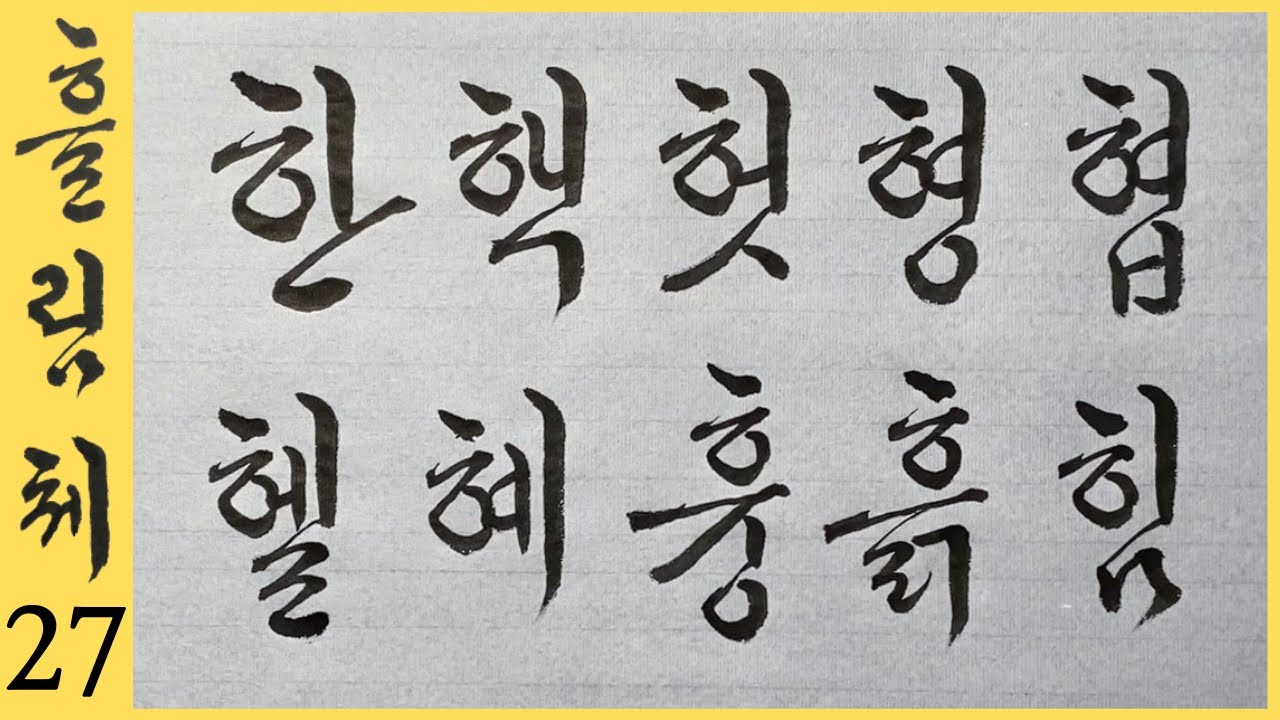 흘림체
27
한 핵 헛 형 협
헬 혜 흥 흙 힘